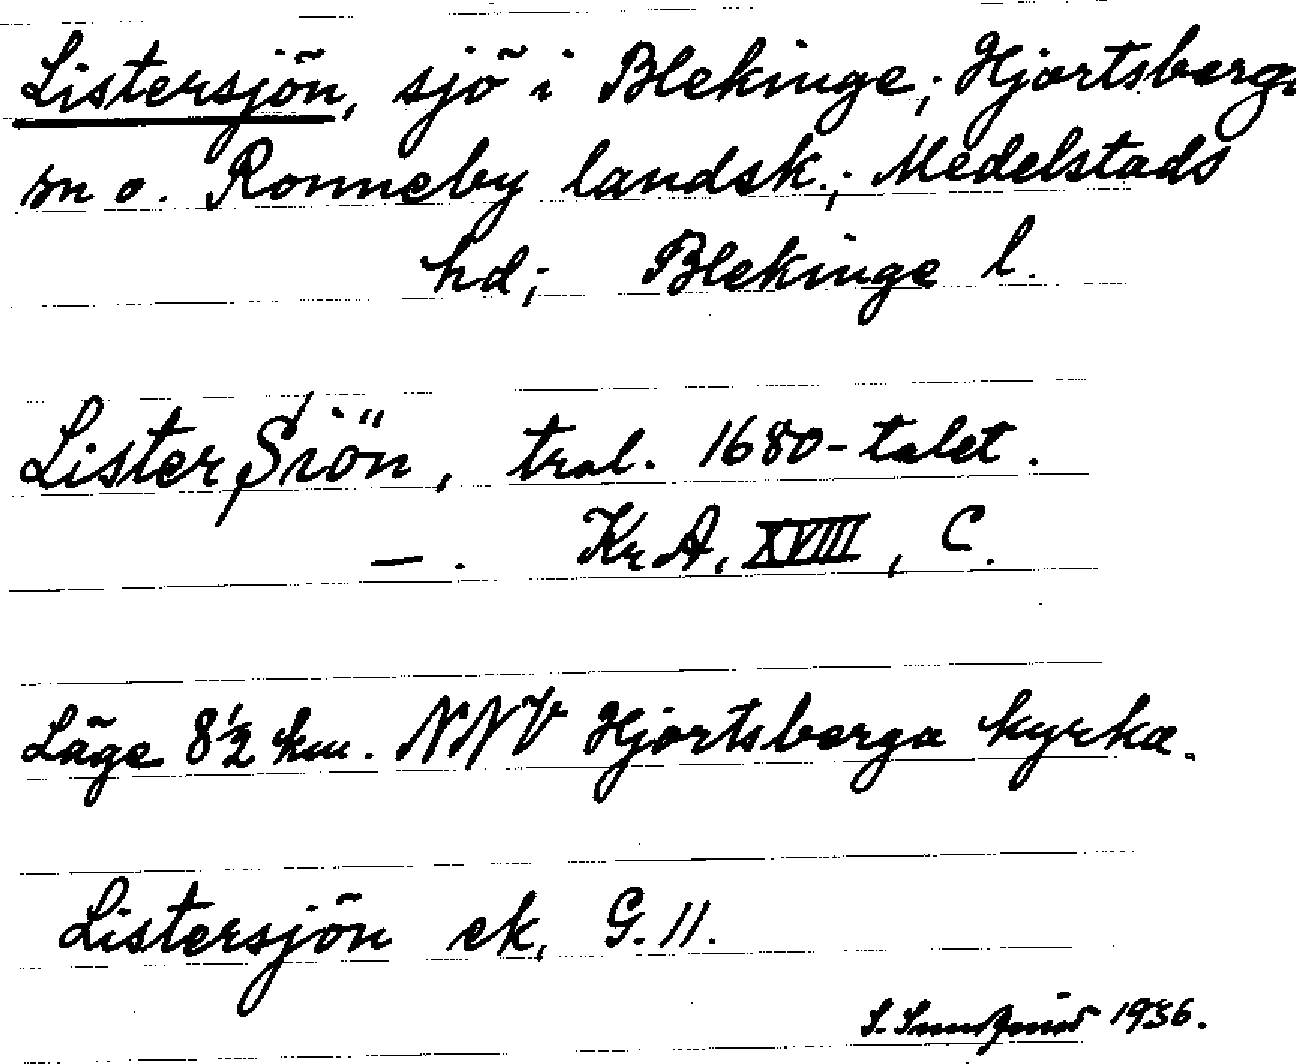 Listersjön, sjö i Blekinge; Hjortsberga
sn o. Ronneby landsk.; Medelstads
hd; Blekinge l.
Lister Siön, tral. 1680-talet.
—. KrA, XVIII, C.
Läge 8½ km. NNV Hjortsberga kyrka.
Listersjön ek, G. 11.
S. 1936.